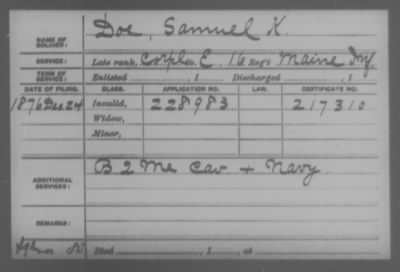 NAME OF SOLDIER: Doe, Samuel K.
SERVICE: Late rank, Corpl Co. E, 16 Reg't Maine Inf.
TERM OF SERVICE: Enlisted , 1 Discharged , 1
DATE OF FILING. CLASS. APPLICATION NO. LAW. CERTIFICATE NO.
1876 Dec 24 Invalid, 228983 217310
Widow,
Minor,
ADDITIONAL SERVICES: B 2 Me Cav + Navy.
REMARKS:
Died , 1 , at